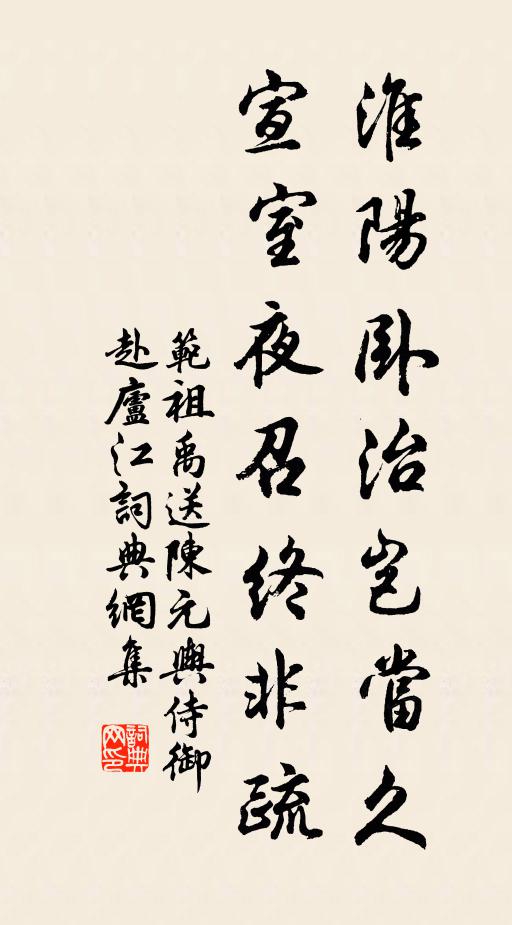 淮陽卧治豈當久
宣室夜召終非疏
範祖禹送陳元輿侍御
赴廬江詞典網集
詞典
网印